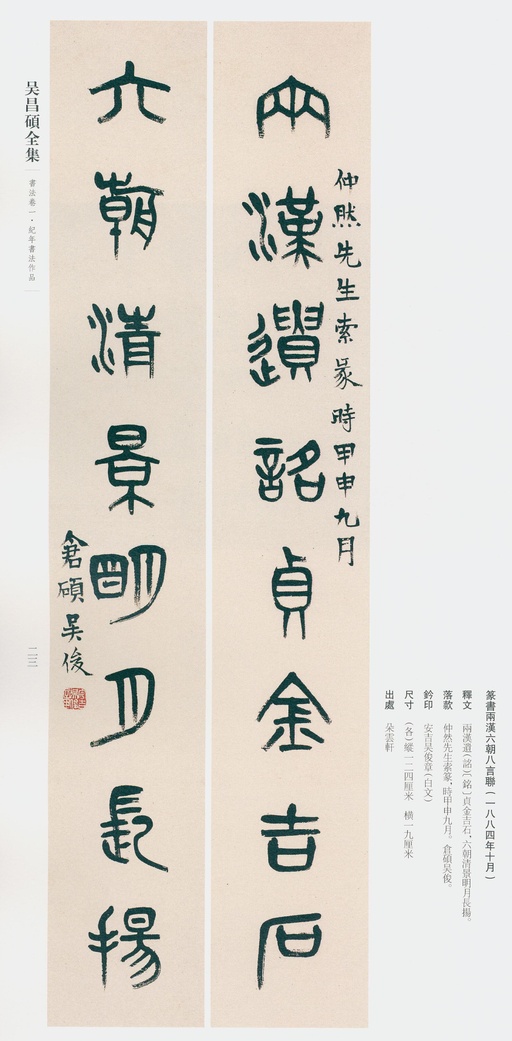 兩漢遺詺貞金吉石
仲然先生索篆時甲申九月
六朝清景明月長揚
倉碩吳俊
篆書兩漢六朝八言聯（一八八四年十月）
釋文　兩漢遺（詺）〔銘〕貞金吉石，六朝清景明月長揚。
落款　仲然先生索篆，時甲申九月。倉碩吴俊。
鈐印　安吉吴俊章（白文）
尺寸　（各）縱一二四厘米　橫一九厘米
出處　朵雲軒
吴昌碩全集
書法卷一·紀年書法作品
二三